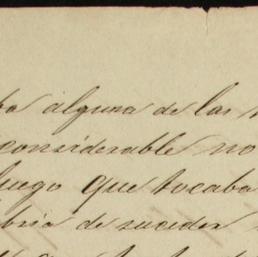 alguna de las
considerable no
luego que tocaba
bria de suceder